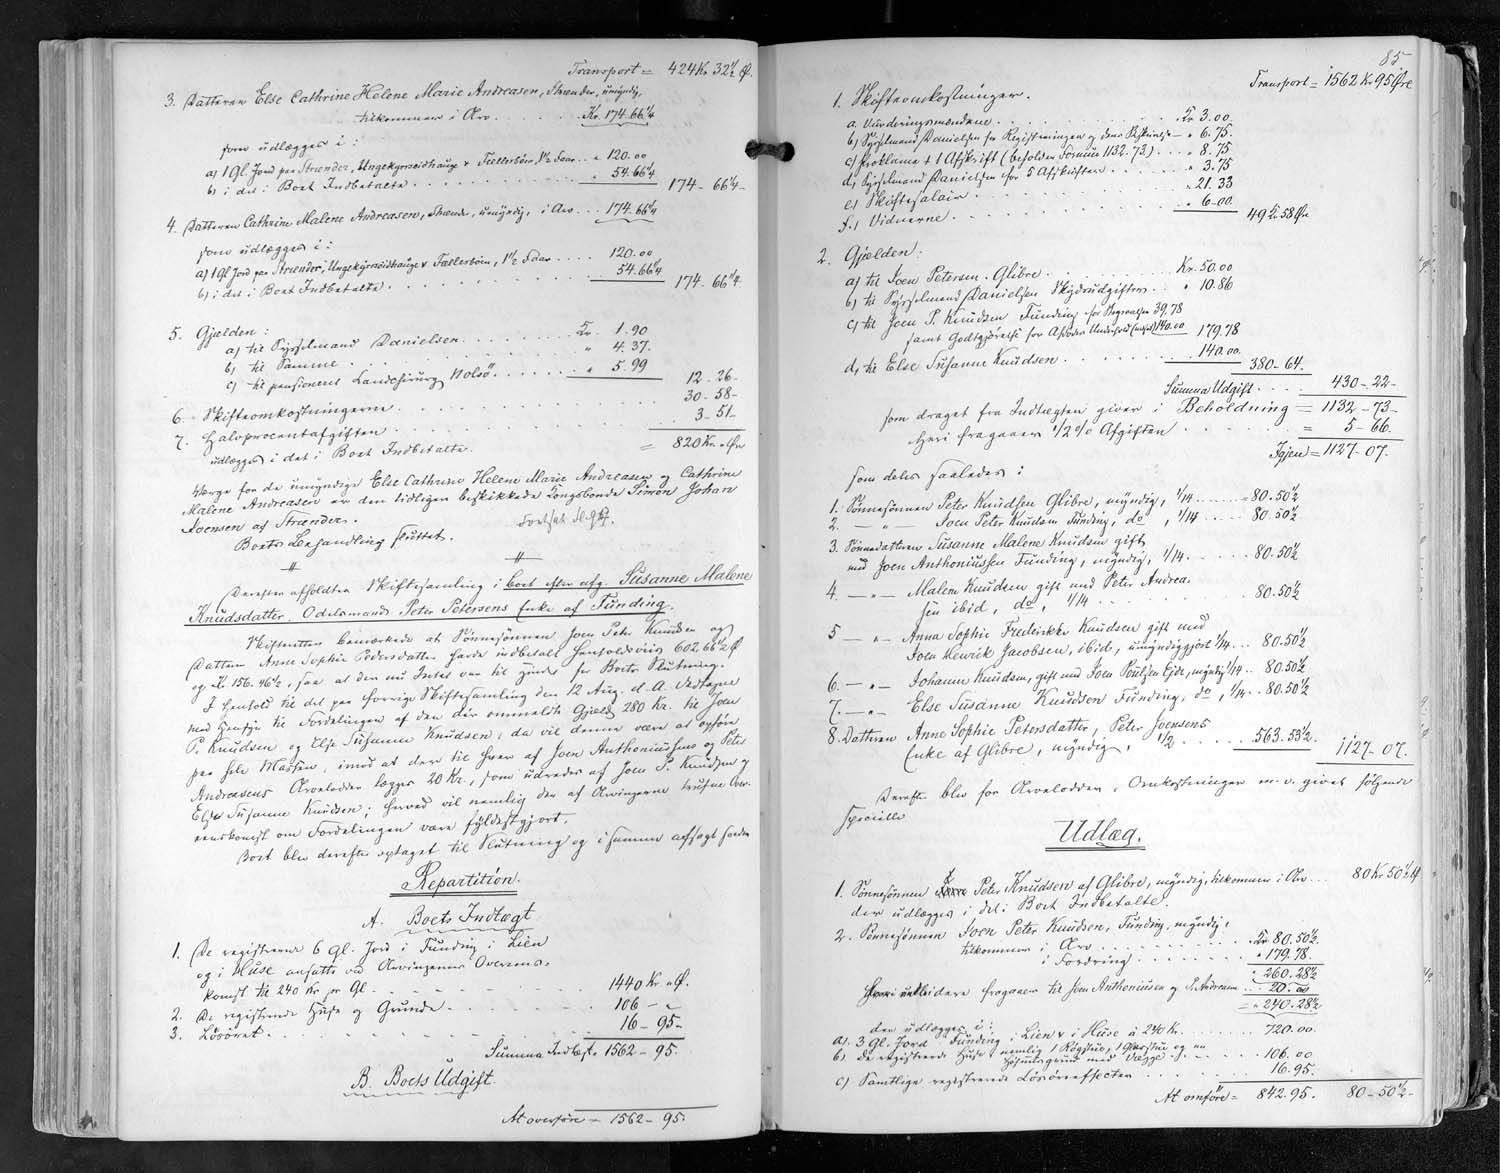 Transport = 424 Kr. 32½ Ø.
3. Datteren Else Cathrine Helene Marie Andreasen, Strænder, umyndig,
tilkommer i Arv . . . . Kr. 174.66¼
som udlægges i:
a) 1 Gl. Jord paa Strænder, Ungekyrveidhauge & Fællesbön, 1½ Faar . . " 120.00
b) i det i Boet Indbetalte . . . . " 54.66¼ 174 - 66¼ -
4. Datteren Cathrine Malene Andreasen, Strænd., umyndig, i Arv . . . 174.66¼
som udlægges i:
a) 1 Gl Jord paa Strænder, Ungekyrveidhauge & Fællesbön, 1½ Faar . . . 120.00
b) i det i Boet Indbetalte . . . . 54.66¼ 174 - 66¼ -
5. Gjælden:
a) til Sysselmand Danielsen . . . . Kr. 1.90
b) til Samme . . . . " 4.37.
c) til pensioneret Landchirurg Nolsö . . . . " 5.99 12 - 26 -
6. Skifteomkostningerne . . . . 30 - 58 -
7. Halvprocentafgiften . . . . 3 - 51 -
udlægges i det i Boet Indbetalte. = 820 Kr. " Ør
Værge for de umyndige Else Cathrine Helene Marie Andreasen og Cathrine
Malene Andreasen er den tidligere beskikkede Kongsbonde Simon Johan
Joensen af Strænder. Fortsat
Boets Behandling sluttet.
Derefter afholdtes Skiftesamling i Boet efter afg. Susanne Malene
Knudsdatter, Odelsmand Peter Petersens Enke af Funding.
Skifteretten bemærkede at Sönnesönnen Joen Peter Knudsen og
Datteren Anne Sophie Pedersdatter havde indbetalt henholdsviis 602.66½ Ø
og Kr. 156.46½, saa at der nu Intet var til Hinder for Boets Slutning.
I Henhold til det paa forrige Skiftesamling den 12 Aug. d. A. Vedtagne
med Hensyn til Fordelingen af den der ommeldte Gjæld 280 Kr. til Joen
P. Knudsen og Else Susanne Knudsen, da vil denne være at opföre
paa hele Massen, imod at der til hver af Joen Anthoniussens og Peter
Andreasens Arvelodder lægges 20 Kr., som udredes af Joen P. Knudsen og
Else Susanne Knudsen; herved vil nemlig den af Arvingerne trufne Over-
eenskomst om Fordelingen være fyldestgjort.
Boet blev derefter optaget til Slutning og i samme afsagt saadan
Repartition.
A. Boets Indtægt
1. De registrerede 6 Gl. Jord i Funding i Lien
og i Huse ansatte ved Arvingernes Overens-
komst til 240 Kr. pr Gl. . . . . 1440 Kr " Ø.
2. De registrerede Huse og Grunde . . . . 106 - " -
3. Lösöret . . . . 16 - 95 -
Summa Indtægt 1562 - 95.
B. Boets Udgift.
At overföre = 1562 - 95.
85
Transport = 1562 Kr 95 Øre
1. Skifteomkostninger.
a. Vurderingsmændene . . . . Kr 3.00.
b) Sysselmand Danielsen for Registreringen og dens Beskrivelse - " 6.75.
c) Proklama + 1 Afskrift (beholden Formue 1132.73.) . . . " 8.75
d) Sysselmand Danielsen for 5 Afskrifter . . . . " 3.75
e) Skiftesalair . . . . " 21.33
f.) Vidnerne . . . . " 6-00 49 Kr. 58 Ør
2. Gjælden:
a) til Joen Petersen, Glibre . . . . Kr. 50.00
b) til Sysselmand Danielsen Skydsudgifter . . " 10.86
c) til Joen P. Knudsen Funding for Begravelsen 39.78
samt Godtgjörelse for Afdödes Underhold 140.00 179.78
d) til Else Susanne Knudsen . . . . 140.00 380 - 64.
Summa Udgift . . . . 430 - 22 -
som draget fra Indtægten giver i Beholdning = 1132 - 73 -
Heri fragaaer ½ % Afgiften . . . . = 5 - 66.
Igjen = 1127 - 07.
som deles saaledes:
1. Sönnesönnen Peter Knudsen Glibre, myndig, 1/14 . . . . " 80.50½
2. — " — Joen Peter Knudsen Funding, do, 1/14 . . . . 80.50½
3. Sönnedatteren Susanne Malene Knudsen gift
med Joen Anthoniussen Funding, myndig, 1/14 . . . . 80.50½
4. — " — Malene Knudsen gift med Peter Andrea-
sen ibid, do, 1/14 . . . . 80.50½
5 — " — Anna Sophie Frederikke Knudsen gift med
Joen Henrik Jacobsen, ibid, umyndiggjort 1/14 . . 80.50½
6. — " — Johanne Knudsen, gift med Joen Poulsen Ejde, myndig 1/14 . . 80.50½
7. — " — Else Susanne Knudsen Funding, do, 1/14 . . 80.50½
8. Datteren Anne Sophie Petersdatter, Peter Joensens
Enke af Glibre, myndig, 1/2 . . . . 563.53½ 1127 - 07.
Derefter blev for Arvelodder, Omkostninger m. v. givet fölgende
specielle
Udlæg.
1. Sönnesönnen Peter Knudsen af Glibre, myndig, tilkommer i Arv . . . 80 Kr 50½ Ø
der udlægges i det i Boet Indbetalte.
2. Sönnesönnen Joen Peter Knudsen, Funding, myndig,
tilkommer i Arv . . . . Kr 80.50½
i Fordring . . . . " 179.78.
" 260.28½
fragaaer til Joen Anthoniussen og P. Andreasen . . 20.00
= " 240.28½
der udlægges i:
a). 3 Gl. Jord Funding i Lien & i Huse à 240 Kr. . . . . 720.00.
b). De registrerede Huse, nemlig 1 Rögstue, 1 Glasstue og en
Hösinds grund med Vægge . . . . 106.00
c) Samtlige registrerede Lösöreeffecter . . . . 16.95.
At omföre = 842.95. 80 - 50½ -